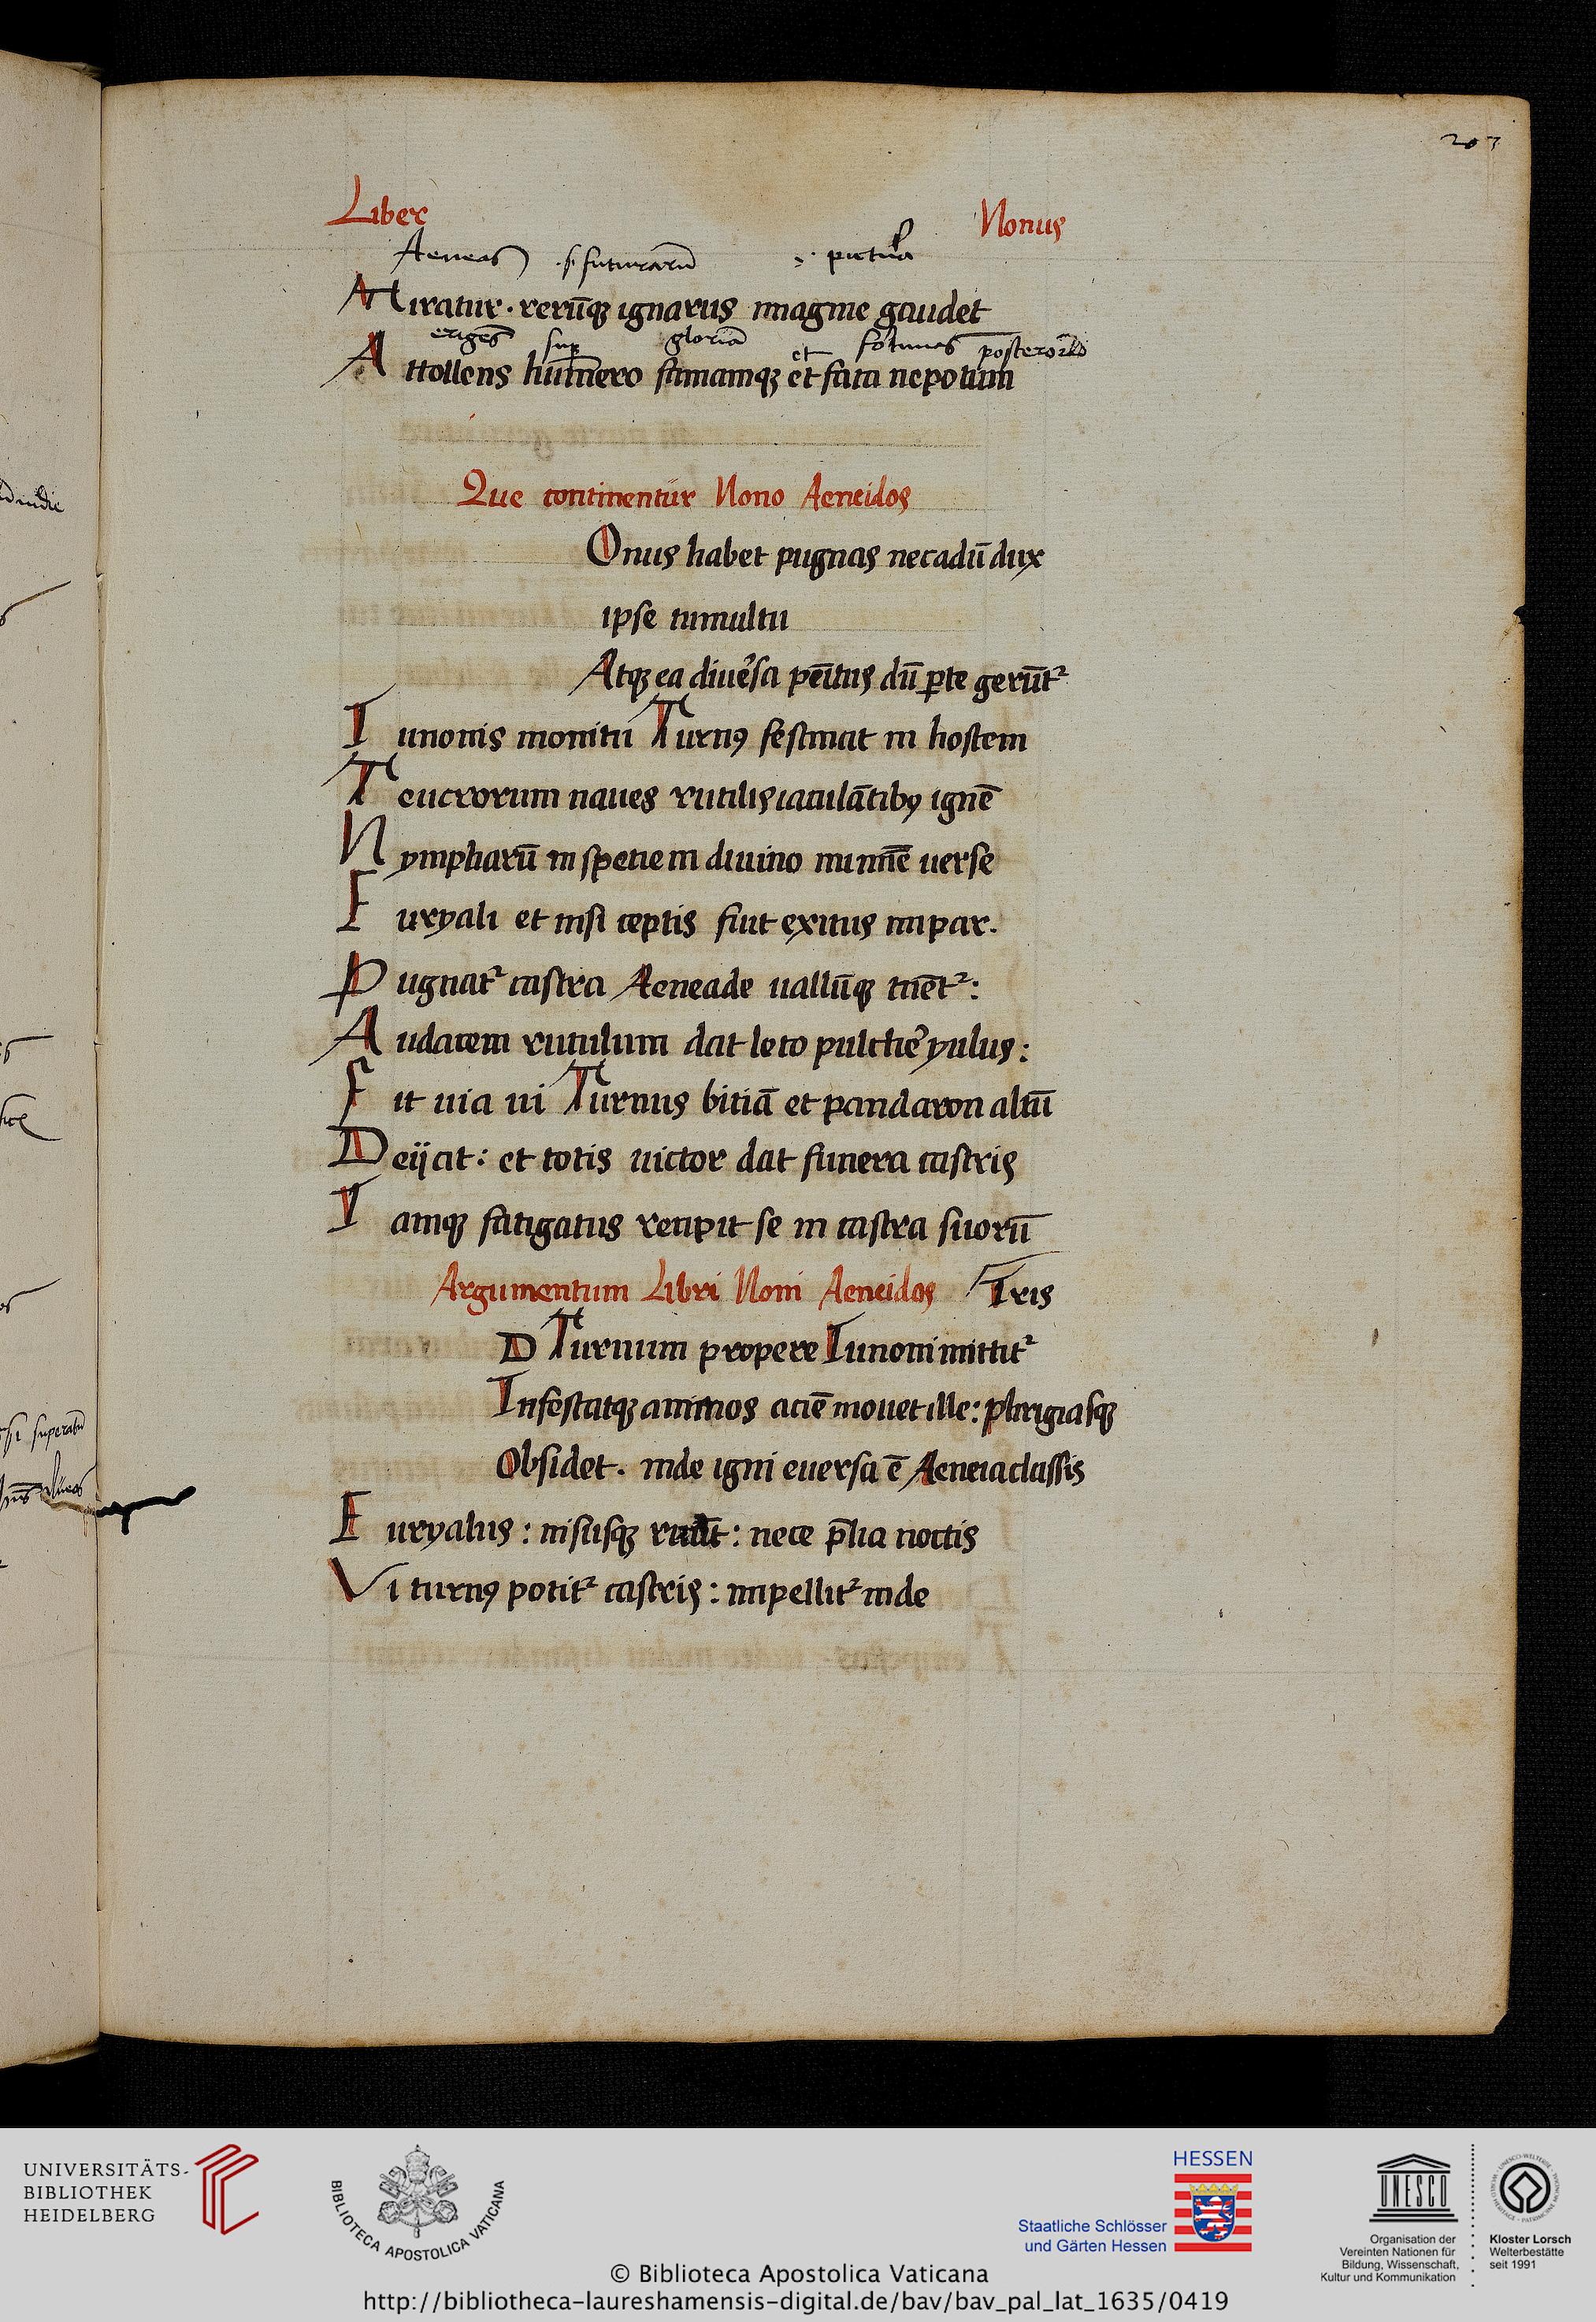 203
Liber Nonus
Aeneas .s. futurarū pictura
Miratur . rerūq; ignarus imagine gaudet
erigēs sup gloriā et fortunas posterorū
Attollens humero famamq; et fata nepotum
Que continentur Nono Aeneidos
Onus habet pugnas necadū dux
ipse tumultu
Atq; ea diuersa pēitus dū parte gerūtr
Iunonis monitu Turnꝰ festinat in hostem
Teucrorum naues rutilis iaculātibꝰ ignē
Nympharū in spetiem diuino numīe uerse
Euryali et nisi ceptis fuit exitus impar.
Pugnatr castra Aeneade uallūq; tuētr:
Audacem rutulum dat leto pulcher yulus:
Fit uia ui Turnus bitiā et pandaron altū
Deijcit: et totis uictor dat funera castris
Iamq; fatigatus recipit se in castra suorū
Argumentum Libri Noni Aeneidos Iris
D Turnum propere Iunoni mittitr
Infestatq; animos aciē mouet ille: phrigiasq;
Obsidet. inde igni euersa ē Aeneia classis
Euryalus: nisusq; ruūt: nece p̄lia noctis
Vi turnꝰ potitr castris: impellitr inde
UNIVERSITÄTS-
BIBLIOTHEK
HEIDELBERG
BIBLIOTECA APOSTOLICA VATICANA
HESSEN
Staatliche Schlösser
und Gärten Hessen
UNESCO
Organisation der
Vereinten Nationen für
Bildung, Wissenschaft,
Kultur und Kommunikation
Kloster Lorsch
Welterbestätte
seit 1991
© Biblioteca Apostolica Vaticana
http://bibliotheca-laureshamensis-digital.de/bav/bav_pal_lat_1635/0419